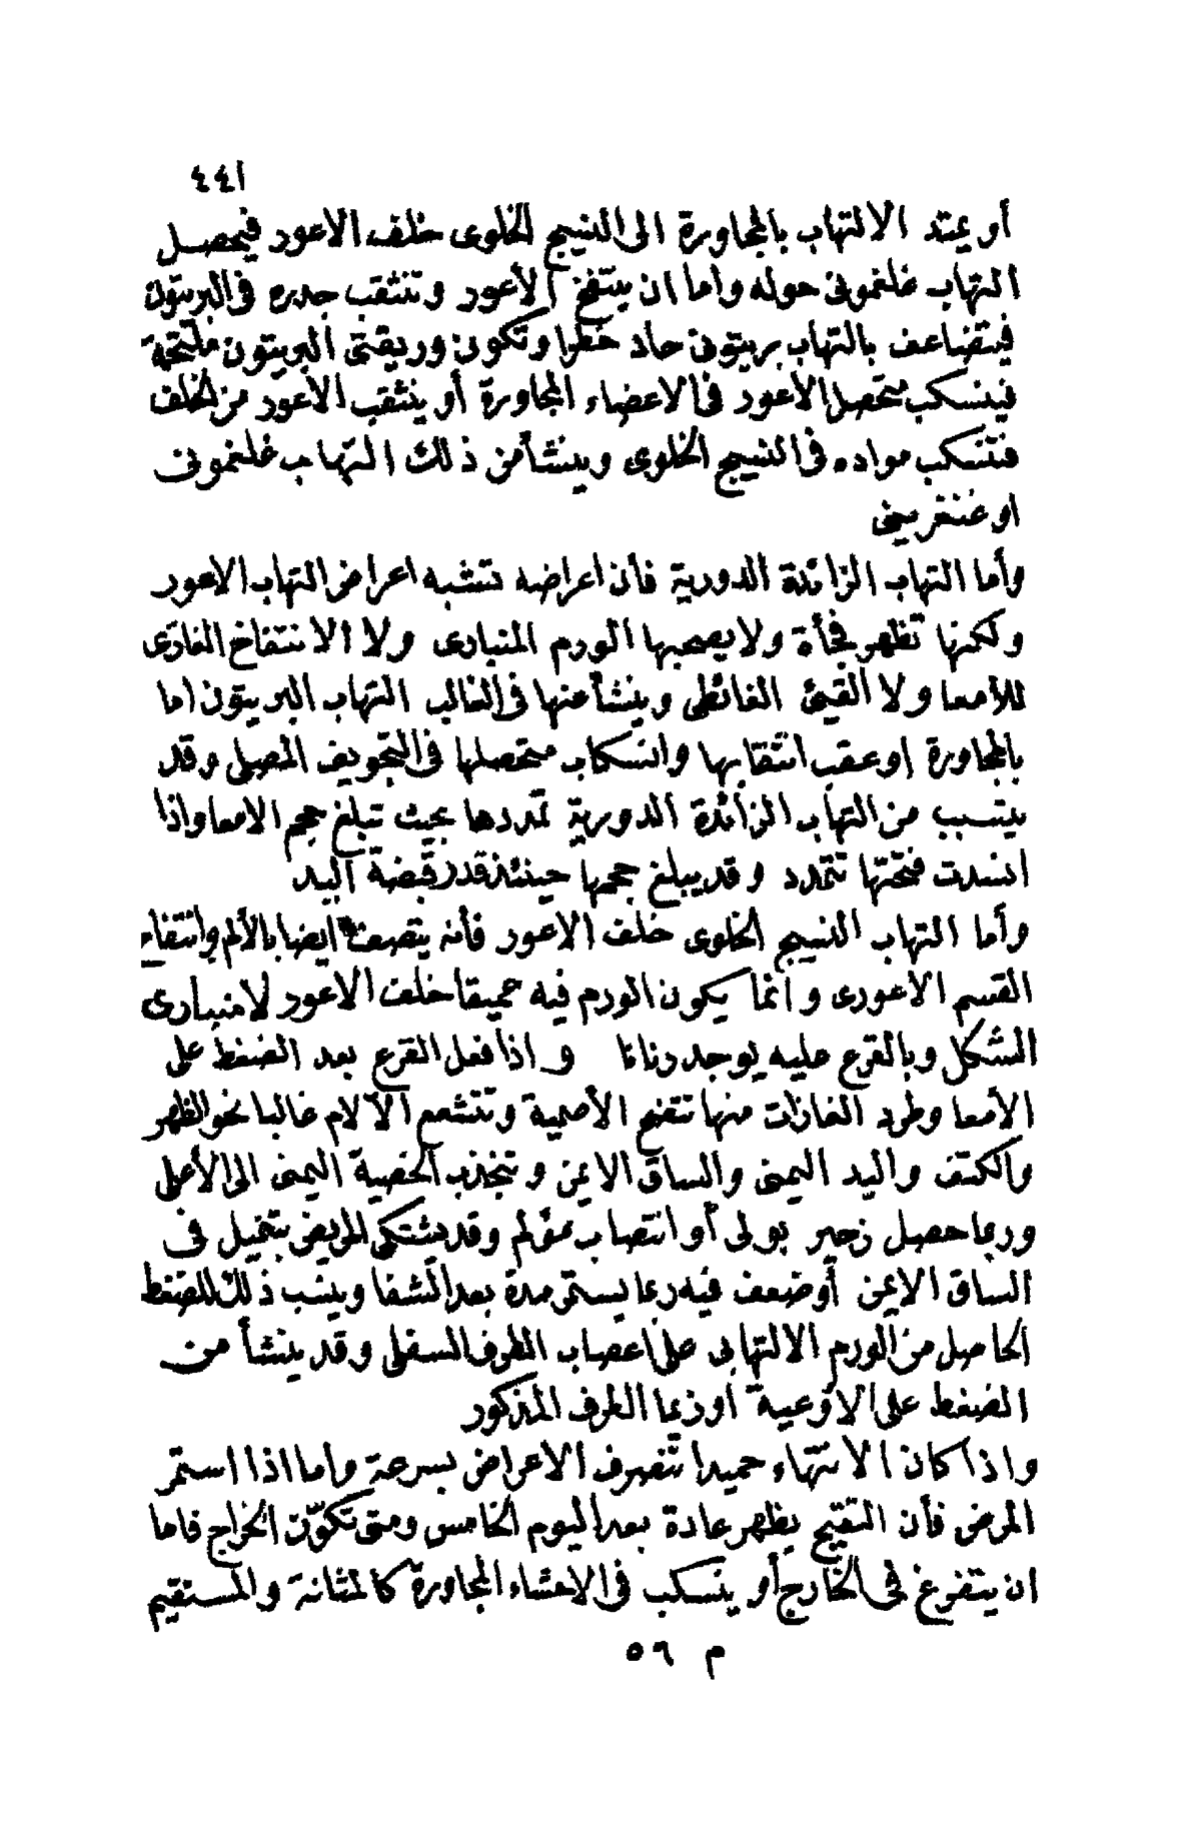 ٤٤١
أو يمتد الالتهاب بالمجاورة الى النسيج الخلوى خلف الاعور فيحصل
التهاب غلغمونى حوله واما ان ينتفخ الأعور وتنثقب جدره فى البريتون
فيتضاعف بالتهاب بريتونى حاد خطرا وتكون وريقتى البريتون ملتحمة
فينسكب متحصل الأعور فى الاعضاء المجاورة أو ينثقب الأعور من الخلف
فتنسكب مواده فى النسيج الخلوى وينشأ من ذلك التهاب غلغمونى
او غنغرينى
وأما التهاب الزائدة الدورية فأن اعراضه تشبه اعراض التهاب الاعور
ولكنها تظهر فجأة ولا يصحبها الورم المنبارى ولا الانتفاخ الغازى
للأمعا ولا القيئ الغائطى وينشأ عنها فى الغالب التهاب البريتون اما
بالمجاورة اوعقب انثقابها وانسكاب متحصلها فى التجويف المصلى وقد
يتسبب من التهاب الزائدة الدورية تمددها بحيث تبلغ حجم الامعا واذا
انسدت فتحتها تتمدد وقد يبلغ حجمها حينئذ قدر قبضة اليد
وأما التهاب النسيج الخلوى خلف الاعور فأنه يتصف ايضا بالألم وانتفاخ
القسم الاعورى وانما يكون الورم فيه عميقا خلف الاعور لا منبارى
الشكل وبالقرع عليه يوجد رنانا واذا فعل القرع بعد الضغط على
الأمعا وطرد الغازات منها تتضح الأصمية وتتشعع الآلام غالبا نحو الظهر
والكتف واليد اليمنى والساق الايمن وتنجذب الخصية اليمنى الى الأعلى
وربما حصل زحير بولى أو انتصاب مؤلم وقد يشتكى المريض بتنميل فى
الساق الايمن أو ضعف فيه ربما يستمر مدة بعد الشفا وينسب ذلك للضغط
الحاصل من الورم الالتهابى على اعصاب الطرف السفلى وقد ينشأ من
الضغط على الاوعية اوزيما الطرف المذكور
واذا كان الانتهاء حميدا تنصرف الاعراض بسرعة واما اذا استمر
المرض فأن التقيح يظهر عادة بعد اليوم الخامس ومتى تكوّن الخراج فاما
ان يتفرغ فى الخارج أو ينسكب فى الاحشاء المجاورة كالمثانة والمستقيم
م ٥٦